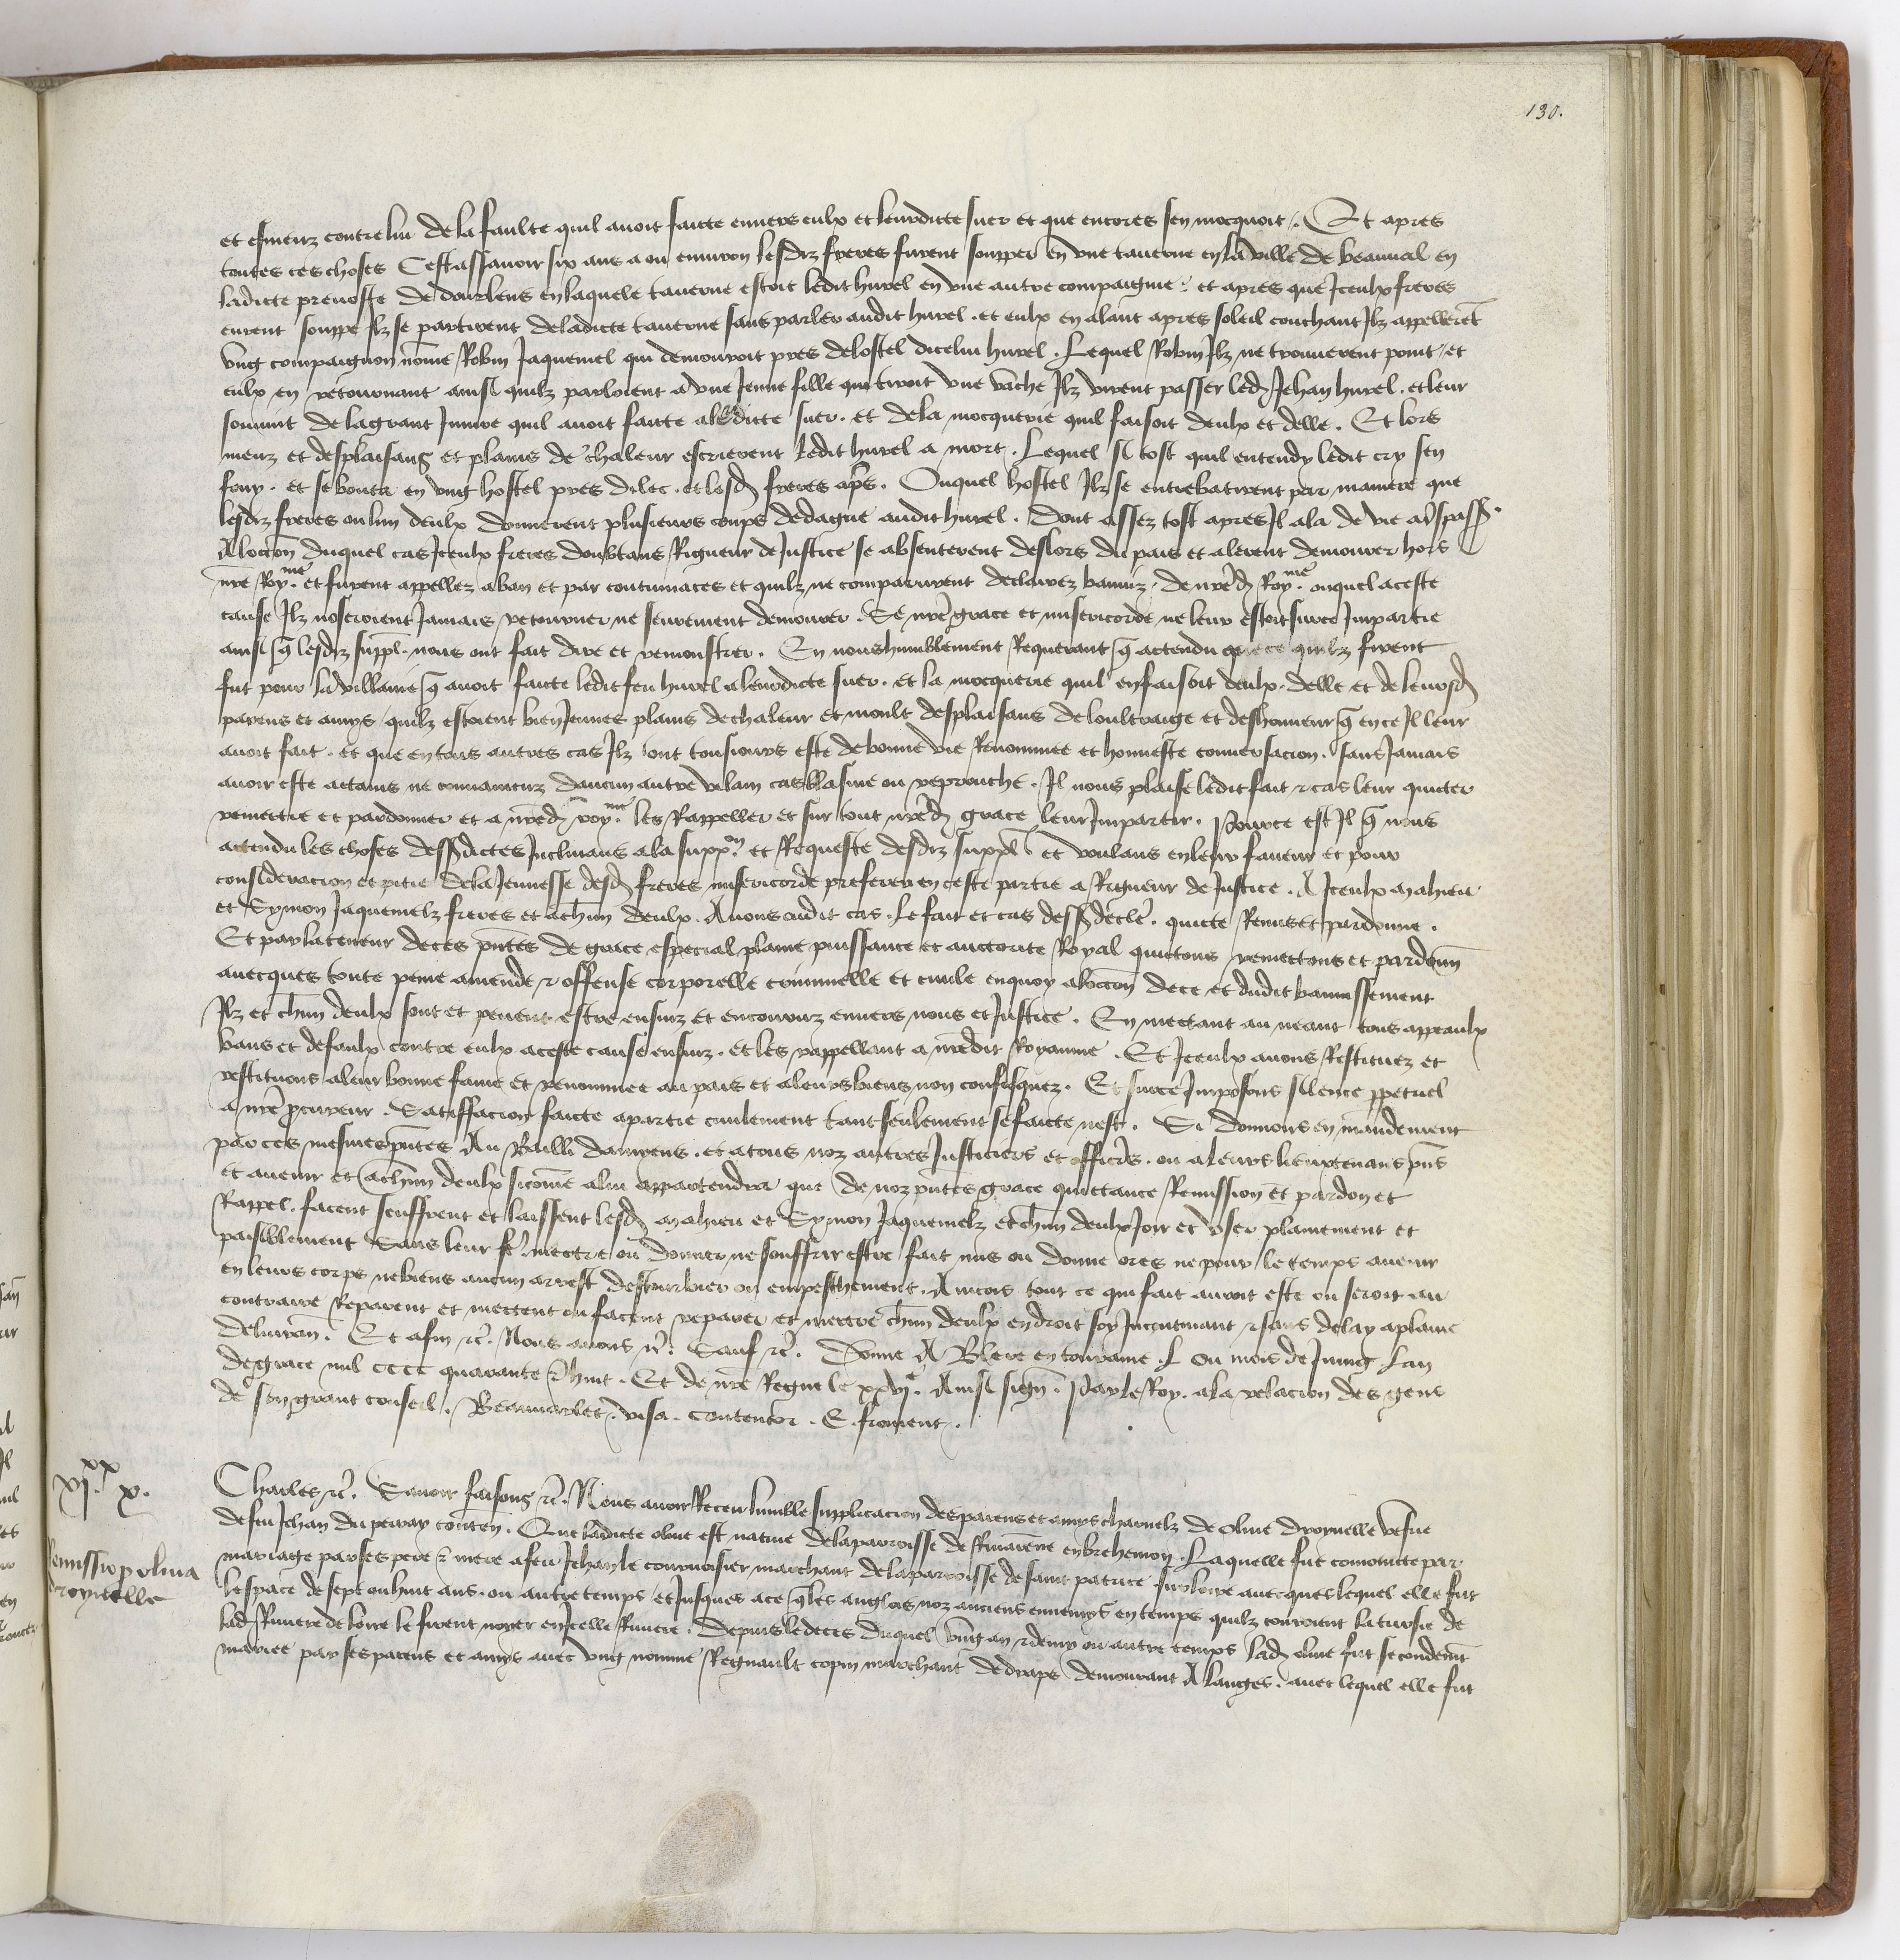 130.
et esmeuz contre lui de la faulte quil avoit faicte envers eulx et leurdicte suer et que encores sen mocquoit. Et apres
toutes ces choses Cestassavoir six ans a ou environ lesdiz freres furent soupper en une taverne en la ville de beauval en
ladicte prevoste de dourlens en laquele taverne estoit ledit hurel en une autre compaignie. et apres que Iceulx freres
eurent souppe Ilz se partirent de ladicte taverne sans parler audit hurel. et eulx en alant apres soleil couchant Ilz appellerēt
ung compaignon nōme Robin Jaquemel qui demouroit pres de lostel dicelui hurel. Lequel Robin Ilz ne trouverent point / et
eulx en retournant ainsi quilz parloient a une Jeune fille qui tiroit une vache Ilz virent passer led Jehan hurel. et leur
souvint de la grant Injure quil avoit faicte a leurdicte suer. et de la mocquerie quil faisoit deulx et delle. Et lors
meuz et desplaisans et plains de chaleur escrierent ledit hurel a mort. Lequel si tost quil entendy ledit cry sen
fouy. et se bouta en ung hostel pres dilec. et lesd freres aps. Ouquel hostel Ilz se entrebatirent par maniere que
lesdiz freres ou lun deulx donnerent plusieurs coups de dague audit hurel. Dont assez tost apres Il ala de vie a trespass.
A loccon duquel cas Iceulx freres doubtans Rigueur de Justice se absenterent deslors du pais et alerent demourer hors
nre Roy.me et furent appellez a ban et par contumaces et quilz ne comparurent declairez banniz. de nred Roy.me ouquel a ceste
cause Ilz noseroient Jamais retourner ne seurement demourer. Se nre grace et misericorde ne leur estoit sur ce Impartie
ainsi q lesdiz suppl. nous ont fait dire et remonstrer. En nous humblement Requerant q actendu que ce quilz firent
fut pour la villanie q avoit faicte ledit feu hurel a leurdicte suer. et la mocquerie quil en faisoit deulx. delle et de leursd
parens et amys / quilz estoient bien Jeunes plains de chaleur et moult desplaisans de loultraige et deshonneur q en ce Il leur
avoit fait. et que en tous autres cas Ilz ont tousjours este de bonne vie Renommee et honneste conversacion. sans Jamais
avoir este actains ne convaincuz daucun autre vilain cas blasme ou reprouche. Il nous plaise ledit fait & cas leur quicter
remectre et pardonner et a nred roy.me les Rappeller et sur tout nred grace leur Impartir. Pource est Il q nous
actendu les choses dessusdictes Inclinans a la supp.on et Requeste desdiz suppl. et voulans en leur faveur et pour
consideracion et pitie de la Jeunesse desd freres misericorde preferer en ceste partie a Rigueur de Justice. A Iceulx mahieu
et Symon Jaquemelz freres et a chūn deulx. Avons oudit cas. Le fait et cas dess declere. quicte Remis et pardonne.
Et par la teneur de ces pntes de grace especial plaine puissance et auctorite Royal quictons remectons et pardonn
avecques toute peine amende & offense corporelle criminelle et civile en quoy a loccon de ce et dudit bannissement
Ilz et chūn deulx sont et pevent estre ensuiz et encouruz envers nous et Justice. En mectant au neant tous appeaulx
bans et defaulx contre eulx a ceste cause ensuiz. et les rappellant a nredit Royaume. Et Iceulx avons Restituez et
restituons a leur bonne fame et renommee au pais et a leurs biens non confisquez. Et sur ce Imposons silence ppetuel
a nre procureur. Satisfacion faicte a partie civilement tant seulement se faicte nest. Si donnons en mandement
par ces mesmes pntes Au Bailli damiens. et a tous noz autres Justiciers et officiers. ou a leurs lieuxtenans pns
et avenir et a chūn deulx sicōme a lui appartendra que de noz pntes grace quictance Remission et pardon et
Rappel. facent seuffrent et laissent lesd mahieu et Symon Jaquemelz et chūn deulx Joir et user plainement et
paisiblement Sans leur fe. mectre ou donner ne souffrir estre fait mis ou donne ores ne pour le temps avenir
en leurs corps ne biens aucun arrest destourbier ou empeschement. Aincois tout ce qui fait auroit este ou seroit au
contraire Reparent et mectent ou facent reparer et mectre chūn deulx en droit soy Incontinant & sans delay a plaine
delivran. Et afin &c. Nous avons &c. Sauf &c. Donne A Blere en touraine. L ou mois de Juing Lan
de grace mil CCCC quarante & huit. Et de nre Regne le xxvi.e Ainsi signe. Par le Roy. a la relacion des gens
de son grant conseil. Beauvarlet. visa. contentor. E. froment.
vi.xx x.
Charles &c. Savoir faisons &c. Nous avoir Receu lumble supplicacion des parens et amys charnelz de olive droynelle vefue
de feu Jehan du peray conten. Que ladicte olive est native de la parroisse de Rivarenne en brehemon. Laquelle fut conioincte par
Remissio p oliva
droynelle
mariage par ses pere & mere a feu Jehan le cournoisier marchant de la parroisse de saint patrice sur loire avecques lequel elle fut
lespace de sept ou huit ans. ou autre temps / et Jusques a ce q les anglois noz anciens ennemys en temps quilz couroient la tursie de
lad Riviere de loire le firent noyer en Icelle Riviere. Depuis le deces duquel ung an & demy ou autre temps lad olive fut secondemt
mariee par ses parens et amys avec ung nomme Regnault copin marchant de draps demourant A langes. avec lequel elle fut